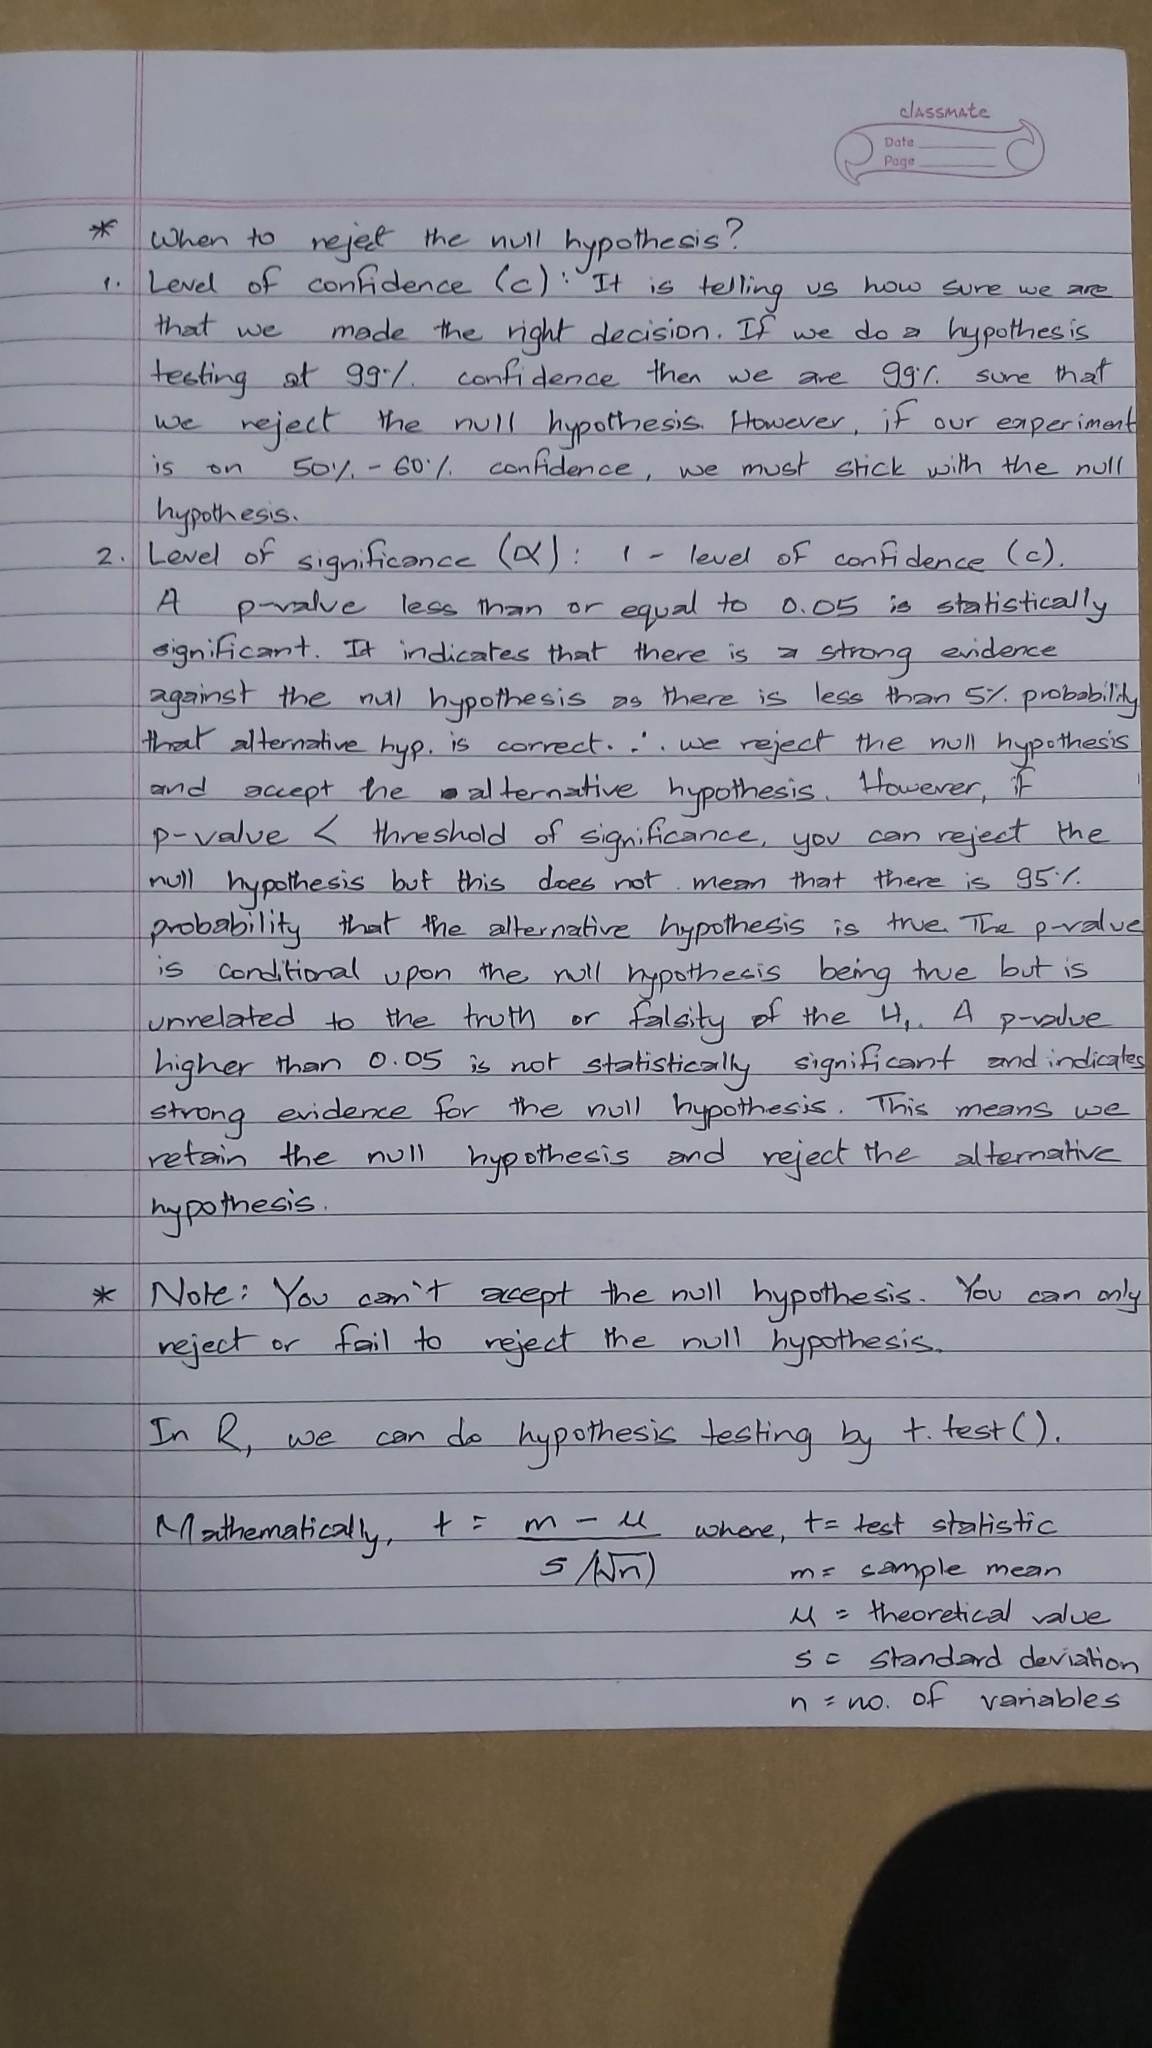 classmate
Date
Page
* When to reject the null hypothesis?
1. Level of confidence (c): It is telling us how sure we are
that we made the right decision. If we do a hypothesis
testing at 99% confidence then we are 99% sure that
we reject the null hypothesis. However, if our experiment
is on 50% - 60% confidence, we must stick with the null
hypothesis.
2. Level of significance (α): 1 - level of confidence (c).
A p-value less than or equal to 0.05 is statistically
significant. It indicates that there is a strong evidence
against the null hypothesis as there is less than 5% probability
that alternative hyp. is correct. ∴ we reject the null hypothesis
and accept the alternative hypothesis. However, if
p-value < threshold of significance, you can reject the
null hypothesis but this does not mean that there is 95%
probability that the alternative hypothesis is true. The p-value
is conditional upon the null hypothesis being true but is
unrelated to the truth or falsity of the H₁. A p-value
higher than 0.05 is not statistically significant and indicates
strong evidence for the null hypothesis. This means we
retain the null hypothesis and reject the alternative
hypothesis.
* Note: You can't accept the null hypothesis. You can only
reject or fail to reject the null hypothesis.
In R, we can do hypothesis testing by t.test().
Mathematically, t = m - μ / s/(√n) where, t = test statistic
m = sample mean
μ = theoretical value
s = standard deviation
n = no. of variables